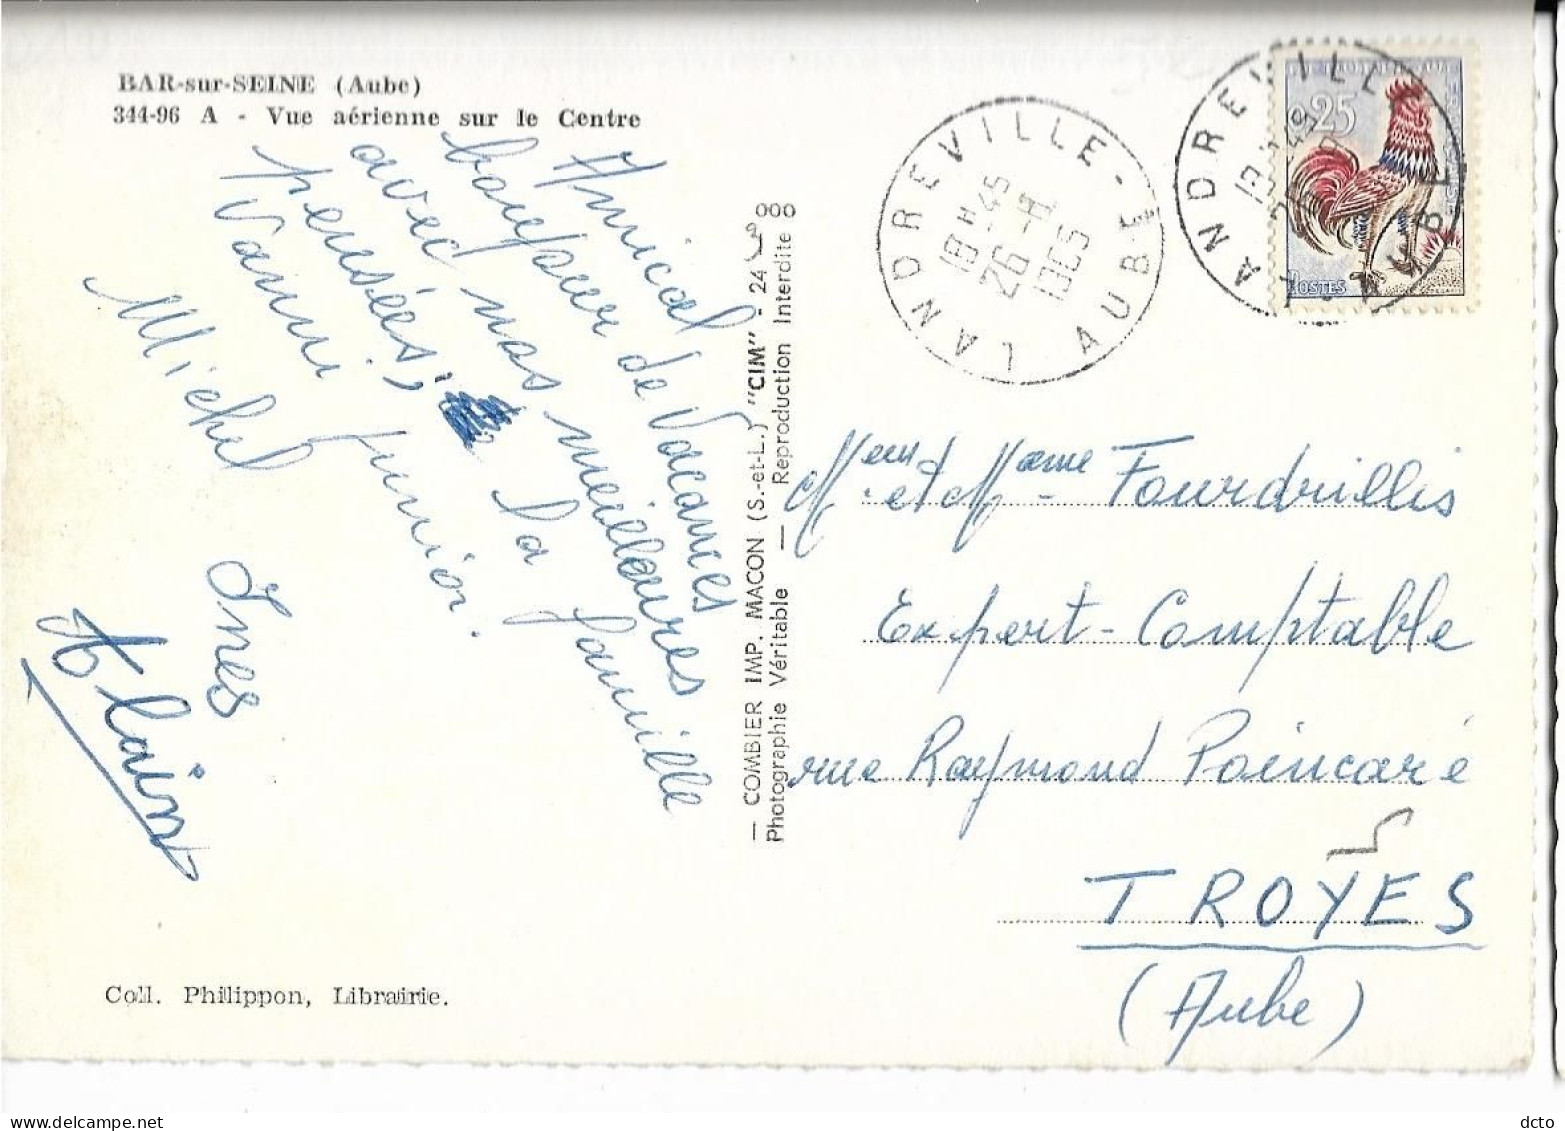 BAR-sur-SEINE (Aube)
344-96 A - Vue aérienne sur le Centre
Amical
bonjour de Vacances
avec nos meilleures
pensées, la famille
Vanni Junior.
Michel
Ines
Alain
Coll. Philippon, Librairie.
— COMBIER IMP. MACON (S.-et-L.) "CIM" - 24
Photographie Véritable — Reproduction Interdite
000
LANDREVILLE - AUBE
18 H 45
26 -
1965
LANDREVILLE
AUBE
0,25
POSTES
Meur et Mame Fourdrillis
Expert-Comptable
rue Raymond Poincaré
TROYES
(Aube)
dcto